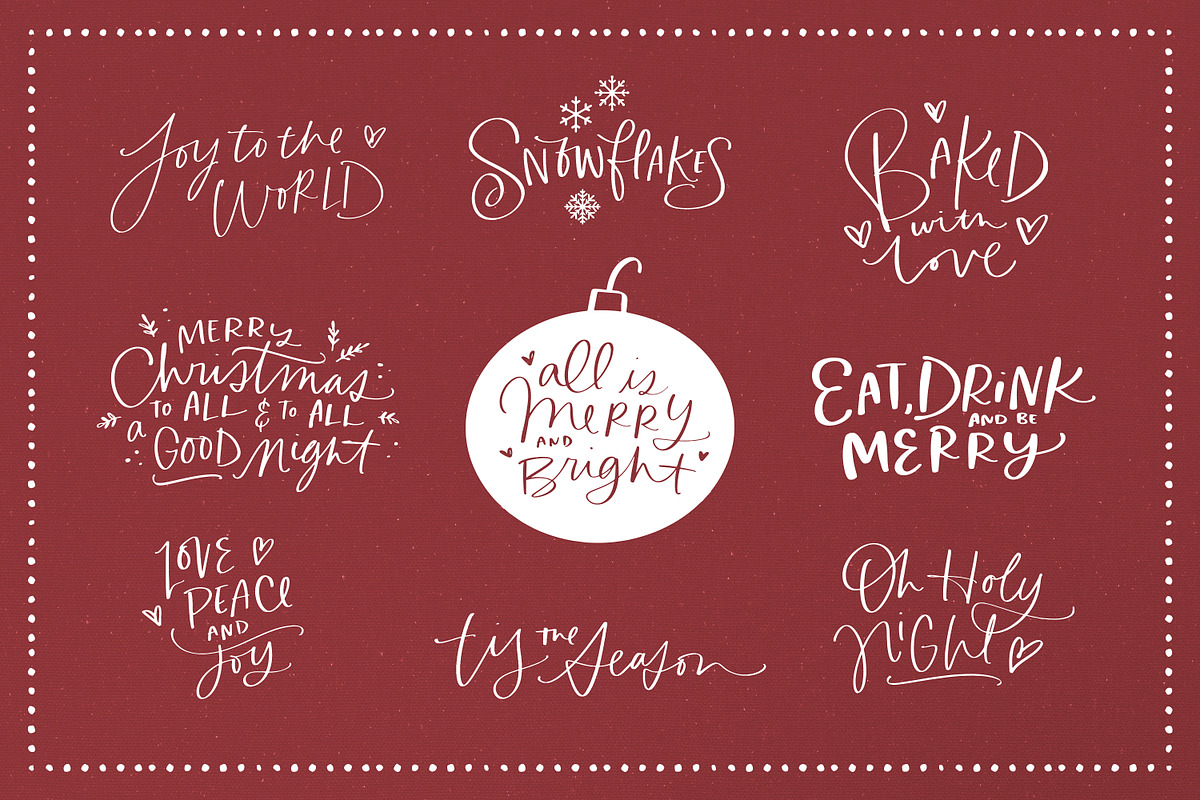 Joy to the
WORLD
SNOWFLAKES
BAKED
with
love
MERRY
Christmas
TO ALL & TO ALL
a GOOD Night
all is
MERRY
AND
Bright
EAT, DRINK
AND BE
MERRY
LOVE
PEACE
AND
Joy
tis the Season
Oh Holy
NIGHT